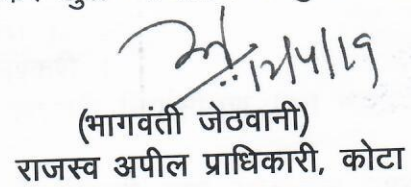 12/4/19
(भागवंती जेठवानी)
राजस्व अपील प्राधिकारी, कोटा